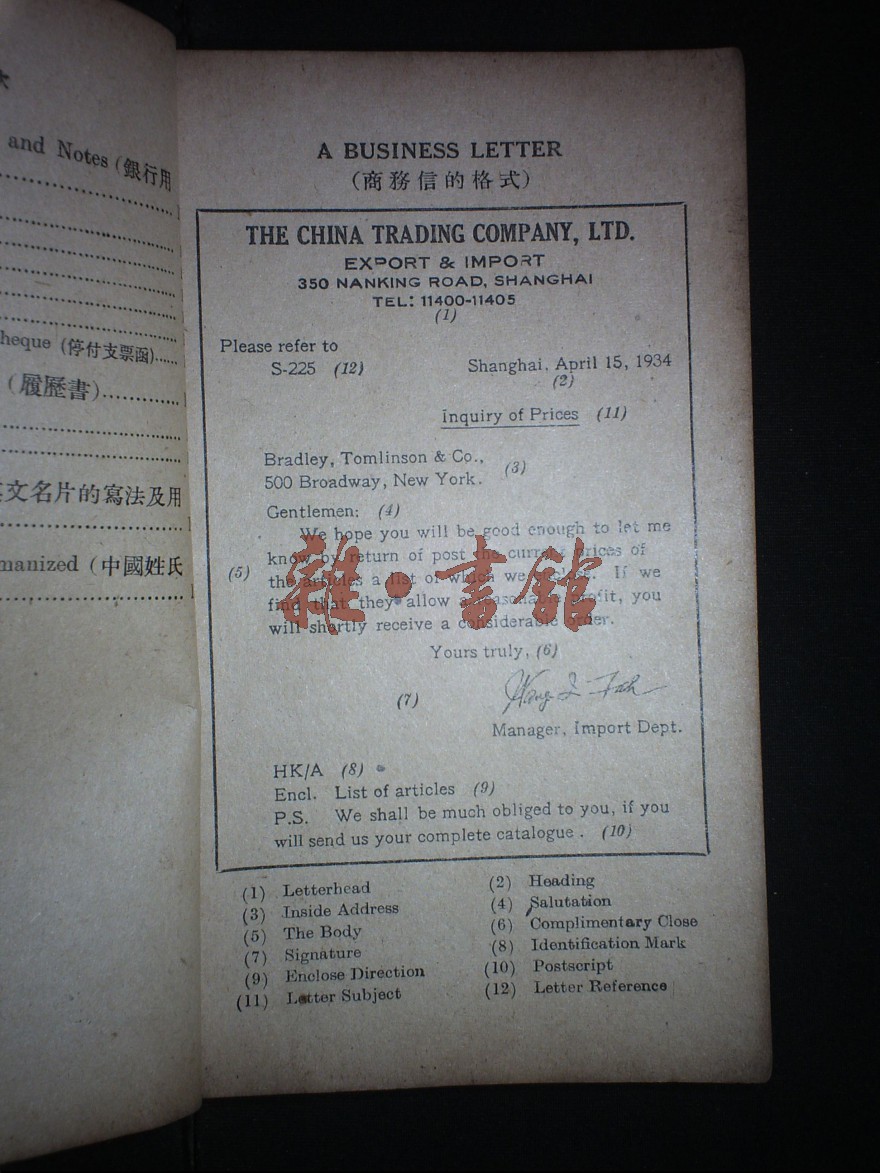 and Notes (銀行用
heque (停付支票函)......
(履歷書)............
文名片的寫法及用
manized (中國姓氏
A BUSINESS LETTER
(商務信的格式)
THE CHINA TRADING COMPANY, LTD.
EXPORT & IMPORT
350 NANKING ROAD, SHANGHAI
TEL: 11400-11405
(1)
Please refer to
S-225 (12)
Shanghai, April 15, 1934
(2)
Inquiry of Prices (11)
Bradley, Tomlinson & Co.,
500 Broadway, New York.
(3)
Gentlemen: (4)
We hope you will be good enough to let me
know by return of post the current prices of
(5) the articles a list of which we enclose. If we
find that they allow a reasonable profit, you
will shortly receive a considerable order.
雜·書館
Yours truly, (6)
(7)
Manager, Import Dept.
HK/A (8)
Encl. List of articles (9)
P.S. We shall be much obliged to you, if you
will send us your complete catalogue. (10)
(1) Letterhead (2) Heading
(3) Inside Address (4) Salutation
(5) The Body (6) Complimentary Close
(7) Signature (8) Identification Mark
(9) Enclose Direction (10) Postscript
(11) Letter Subject (12) Letter Reference